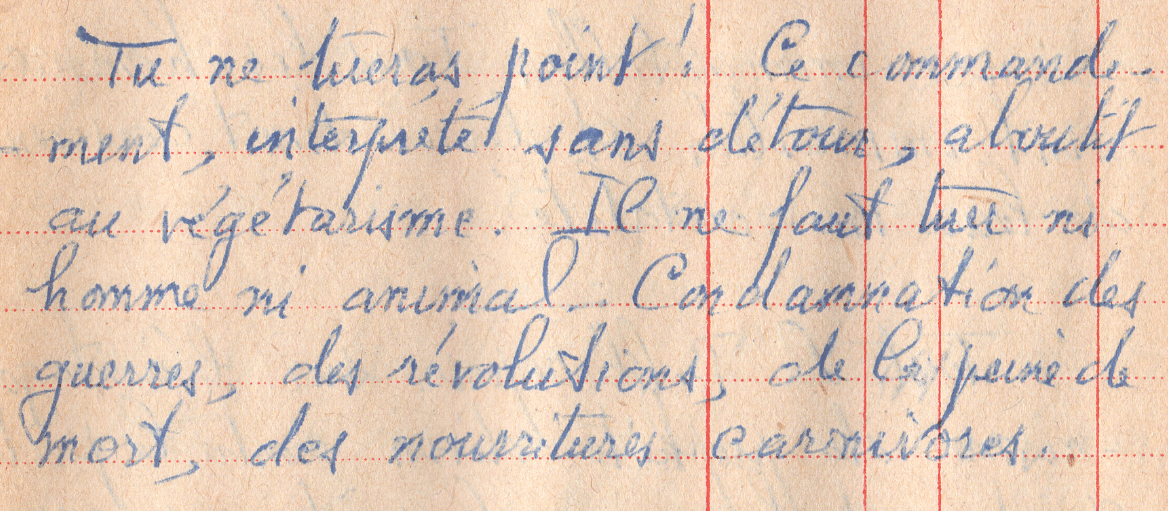 Tu ne tueras point! Ce commande-
ment, interprété sans détour, aboutit
au végétarisme. Il ne faut tuer ni
homme ni animal. Condamnation des
guerres, des révolutions, de la peine de
mort, des nourritures carnivores.